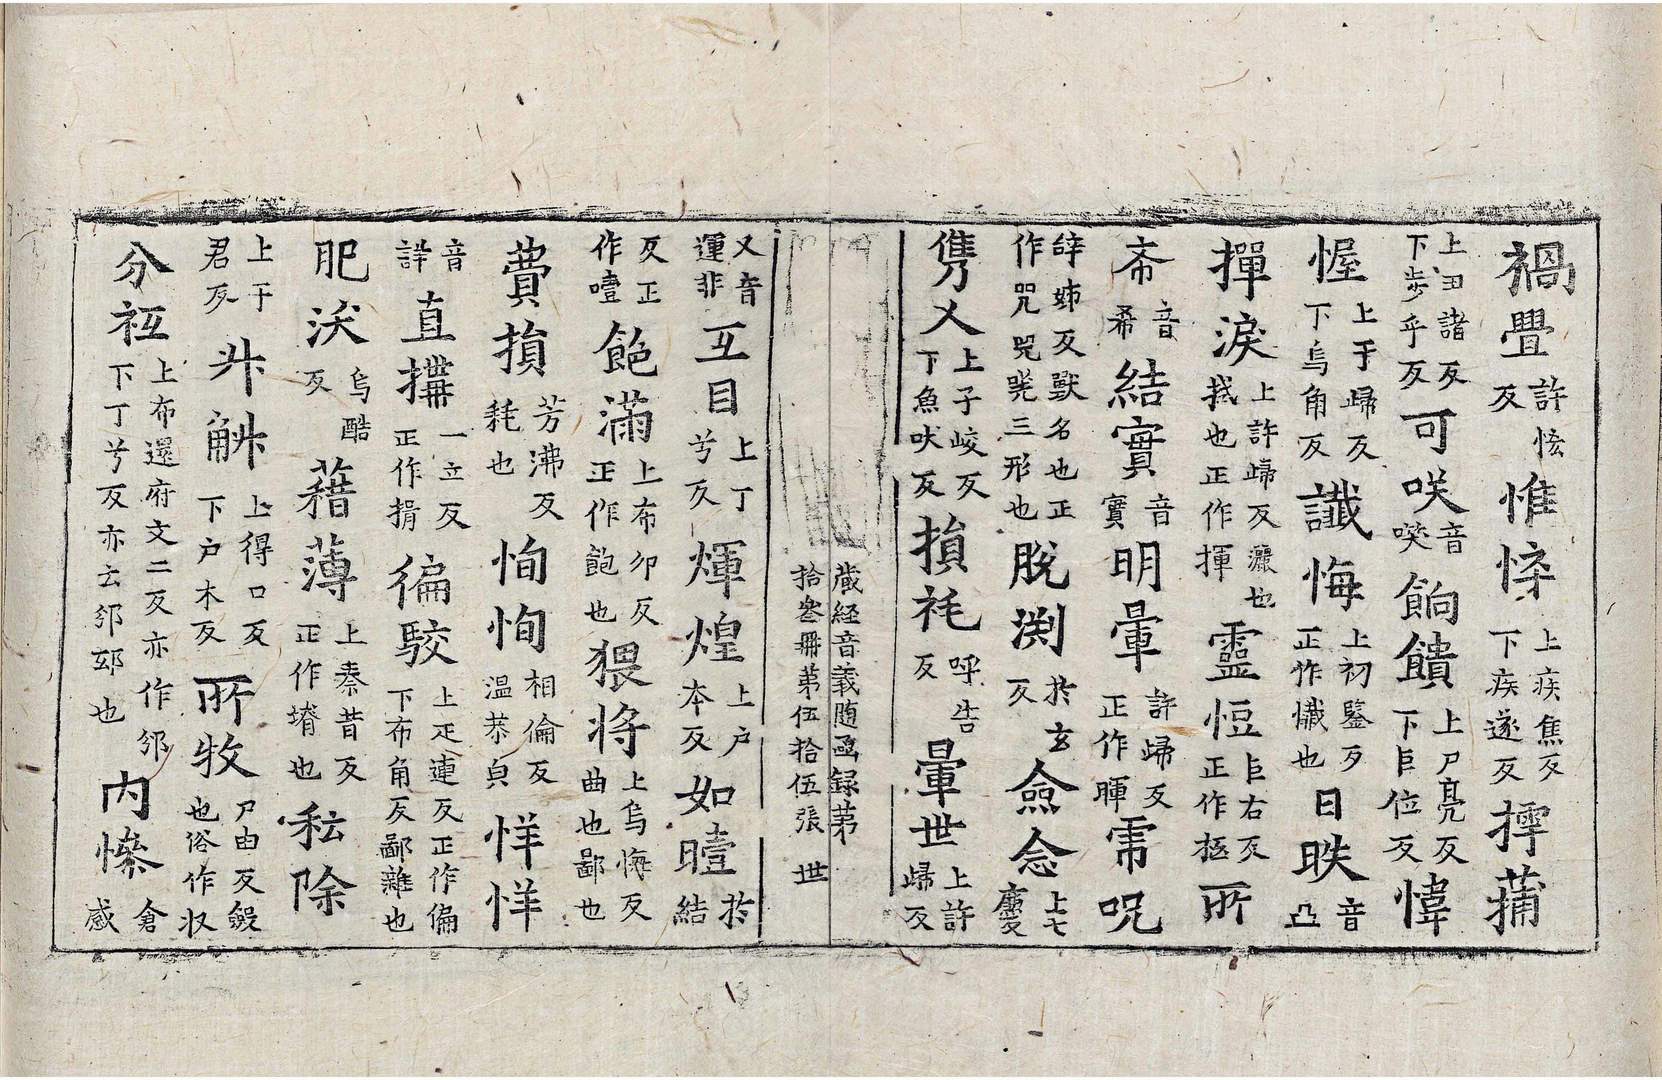 禍疊許怰反惟悴上疾焦反下疾遂反摴蒲
上丑諸反下步乎反可咲音㗛餉饋上尸亮反下巨位反幃
幄上于歸反下烏角反讖悔上初鑒反正作懺也日昳音凸
揮淚上許歸反灑也拭也正作揮靈恒巨右反正作極所
斋音希結實音實明暈許歸反正作暉帍呪
辝姊反獸名也正作咒兕㲋三形也脫渕於玄反僉念上七廉反
㑺乂上子峻反下魚吠反損秏呼告反暈世上許歸反
藏經音義隨函録第拾叁冊第伍拾伍張 世
又音運非互目上丁兮反煇煌上户本反如曀於結
反正作噎飽滿上布卯反正作飽也猥将上烏悔反曲也鄙也
費損芳沸反耗也恂恂相倫反温恭皃恙恙
音詳直撵一立反正作揖徧駮上疋連反正作偏下布角反鄙雜也
肥沃烏酷反藉薄上秦昔反正作塉也耘除
上于君反㪷斛上得口反下户木反所牧尸由反㲉也俗作収
分衼上布還府文二反亦作邠下丁兮反亦云邠邳也内慘倉感